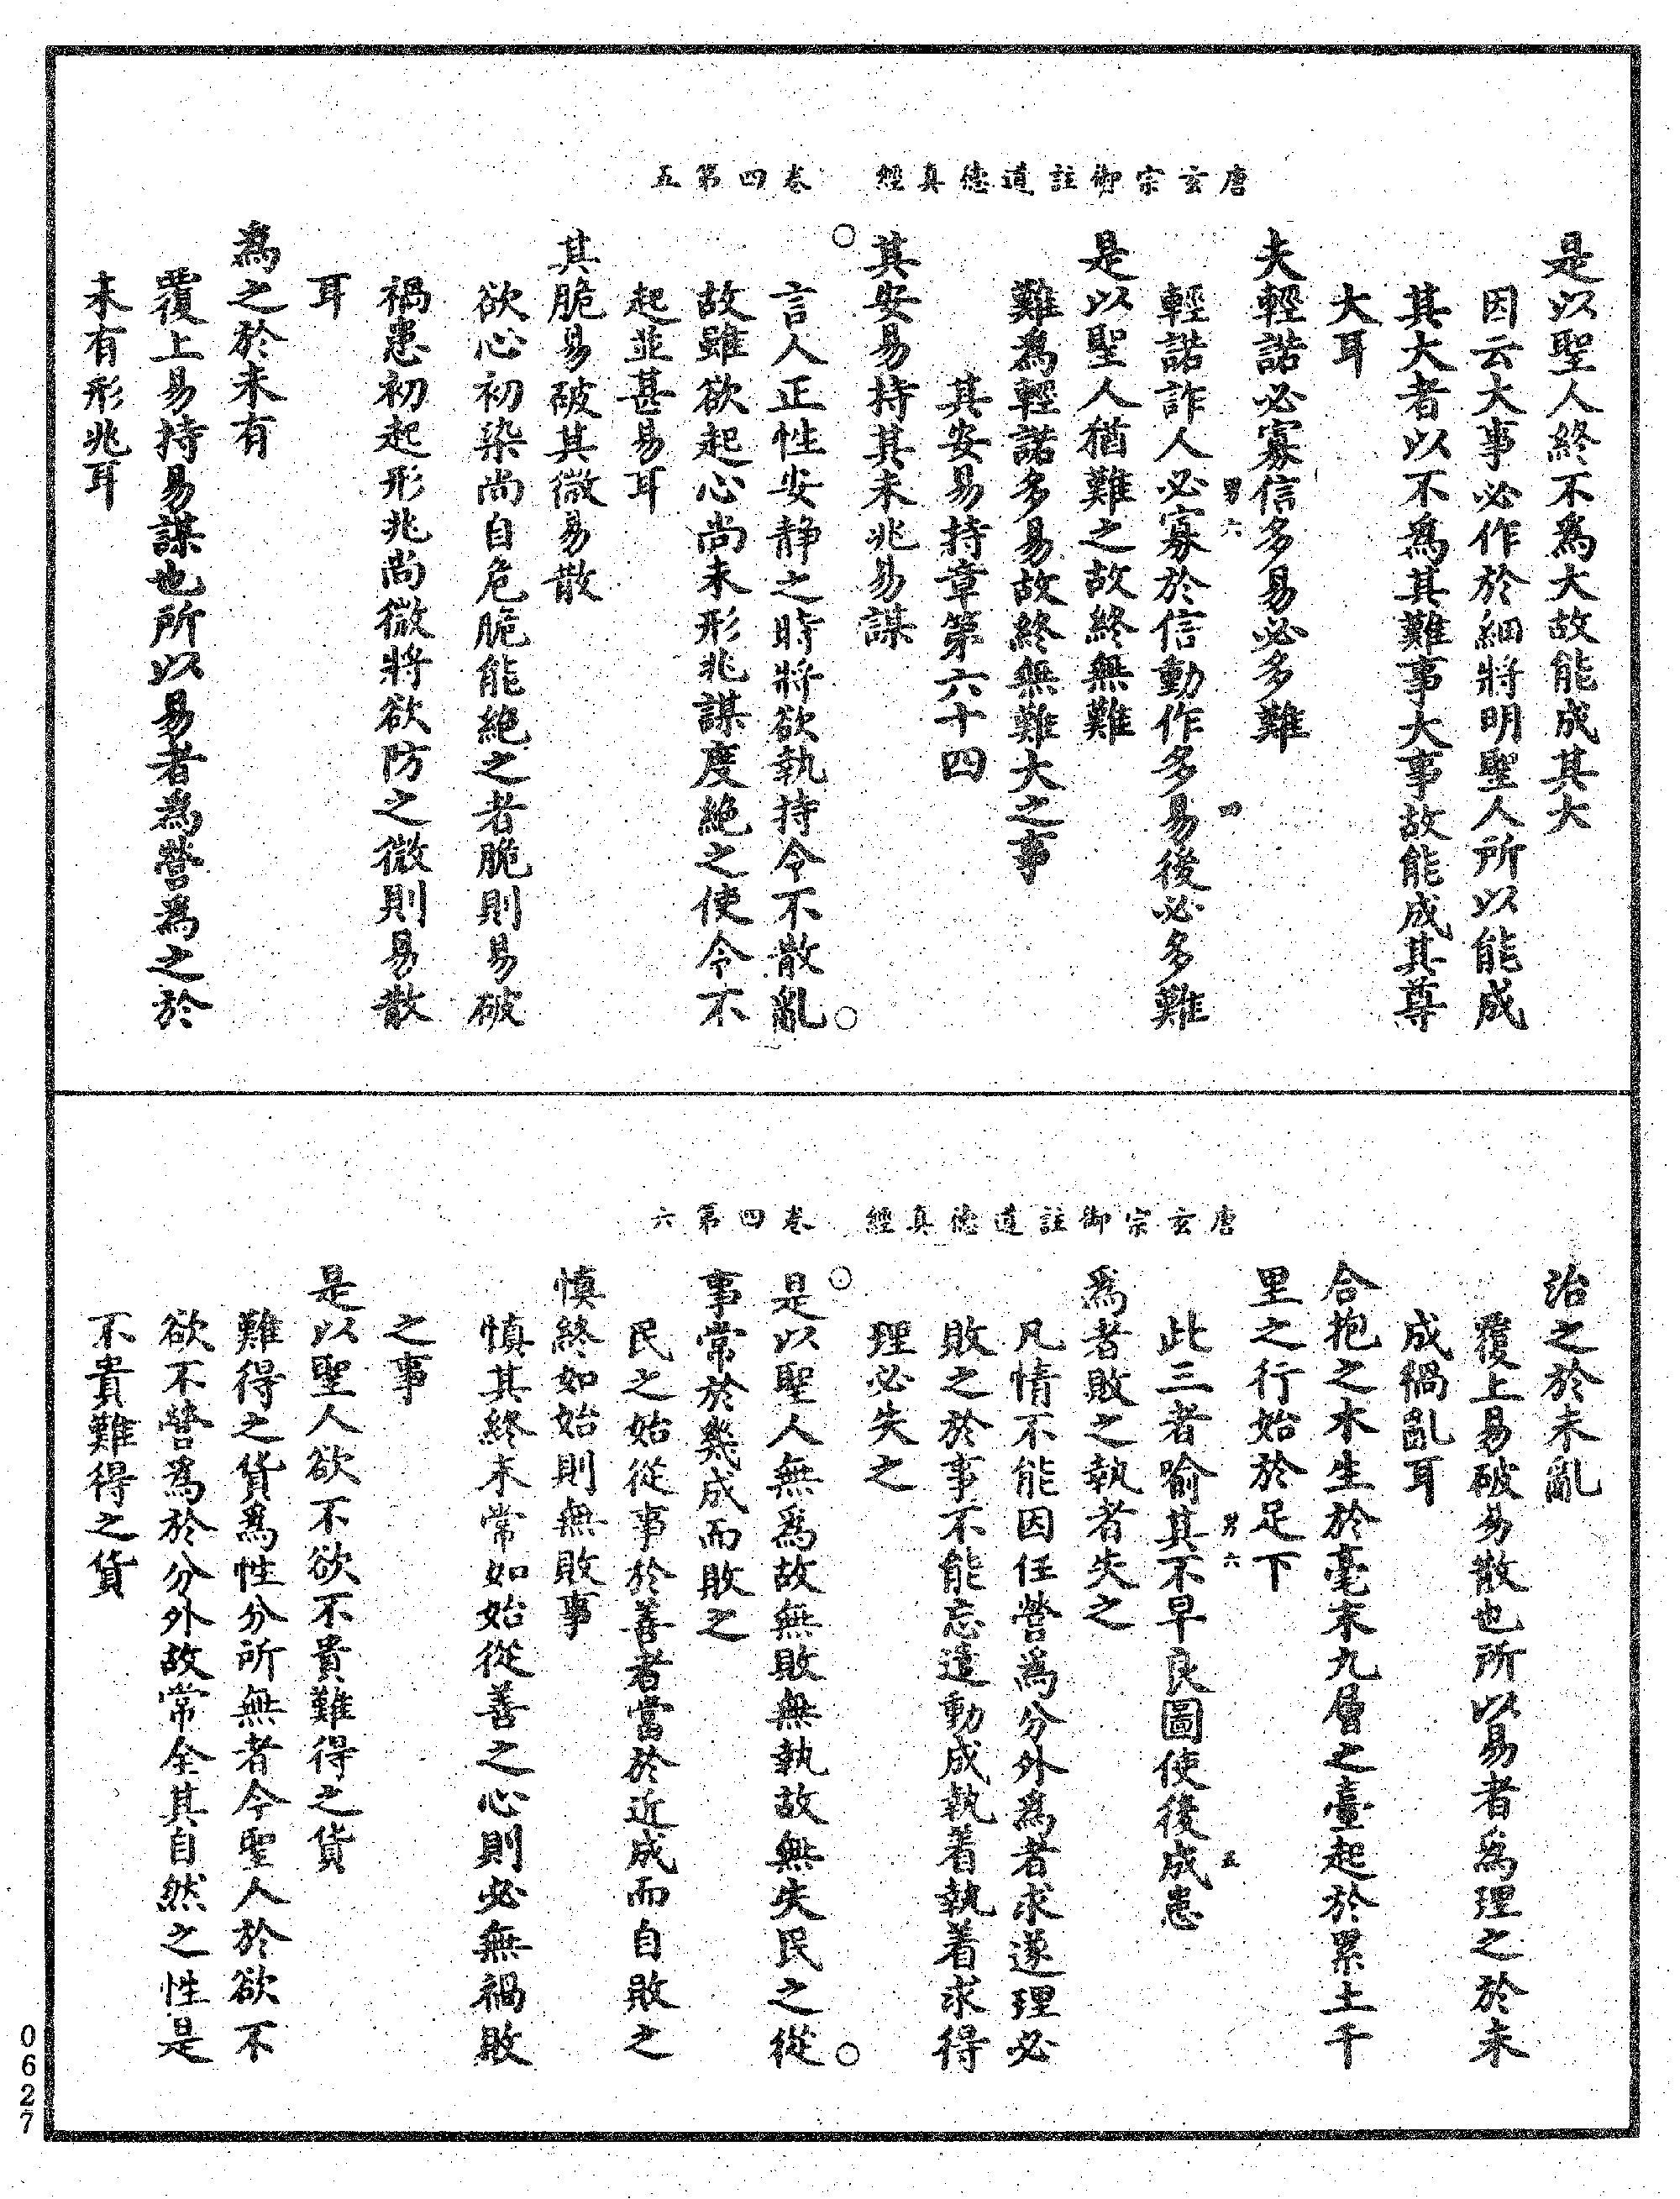 唐玄宗御註道德真經　卷四第五
是以聖人終不為大故能成其大
因云大事必作於細將明聖人所以能成
其大者以不為其難事大事故能成其尊
大耳
夫輕諾必寡信多易必多難
男六　四
輕諾詐人必寡於信動作多易後必多難
是以聖人猶難之故終無難
難為輕諾多易故終無難大之事
其安易持章第六十四
其安易持其未兆易謀
言人正性安静之時將欲執持令不散亂
故雖欲起心尚未形兆謀度絕之使令不
起並甚易耳
其脆易破其微易散
欲心初染尚自危脆能絕之者脆則易破
禍患初起形兆尚微將欲防之微則易散
耳
為之於未有
覆上易持易謀也所以易者為營為之於
未有形兆耳
唐玄宗御註道德真經　卷四第六
治之於未亂
覆上易破易散也所以易者為理之於未
成禍亂耳
合抱之木生於毫末九層之臺起於累土千
里之行始於足下
男六　五
此三者喻其不早良圖使後成患
為者敗之執者失之
凡情不能因任營為分外為者求遂理必
敗之於事不能忘遣動成執着執着求得
理必失之
是以聖人無為故無敗無執故無失民之從
事常於幾成而敗之
民之始從事於善者當於近成而自敗之
慎終如始則無敗事
慎其終末常如始從善之心則必無禍敗
之事
是以聖人欲不欲不貴難得之貨
難得之貨為性分所無者今聖人於欲不
欲不營為於分外故常全其自然之性是
不貴難得之貨
0627